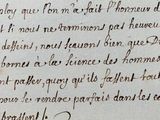 ploy que l'on m'a fait l'honneur d
i nous ne terminons pas heureu
desseins, nous sçavons bien que Di
bornes à les science des hommes
nt passer, quoy qu'ils fassent tout
nous se rendre parfait dans les co
brassent